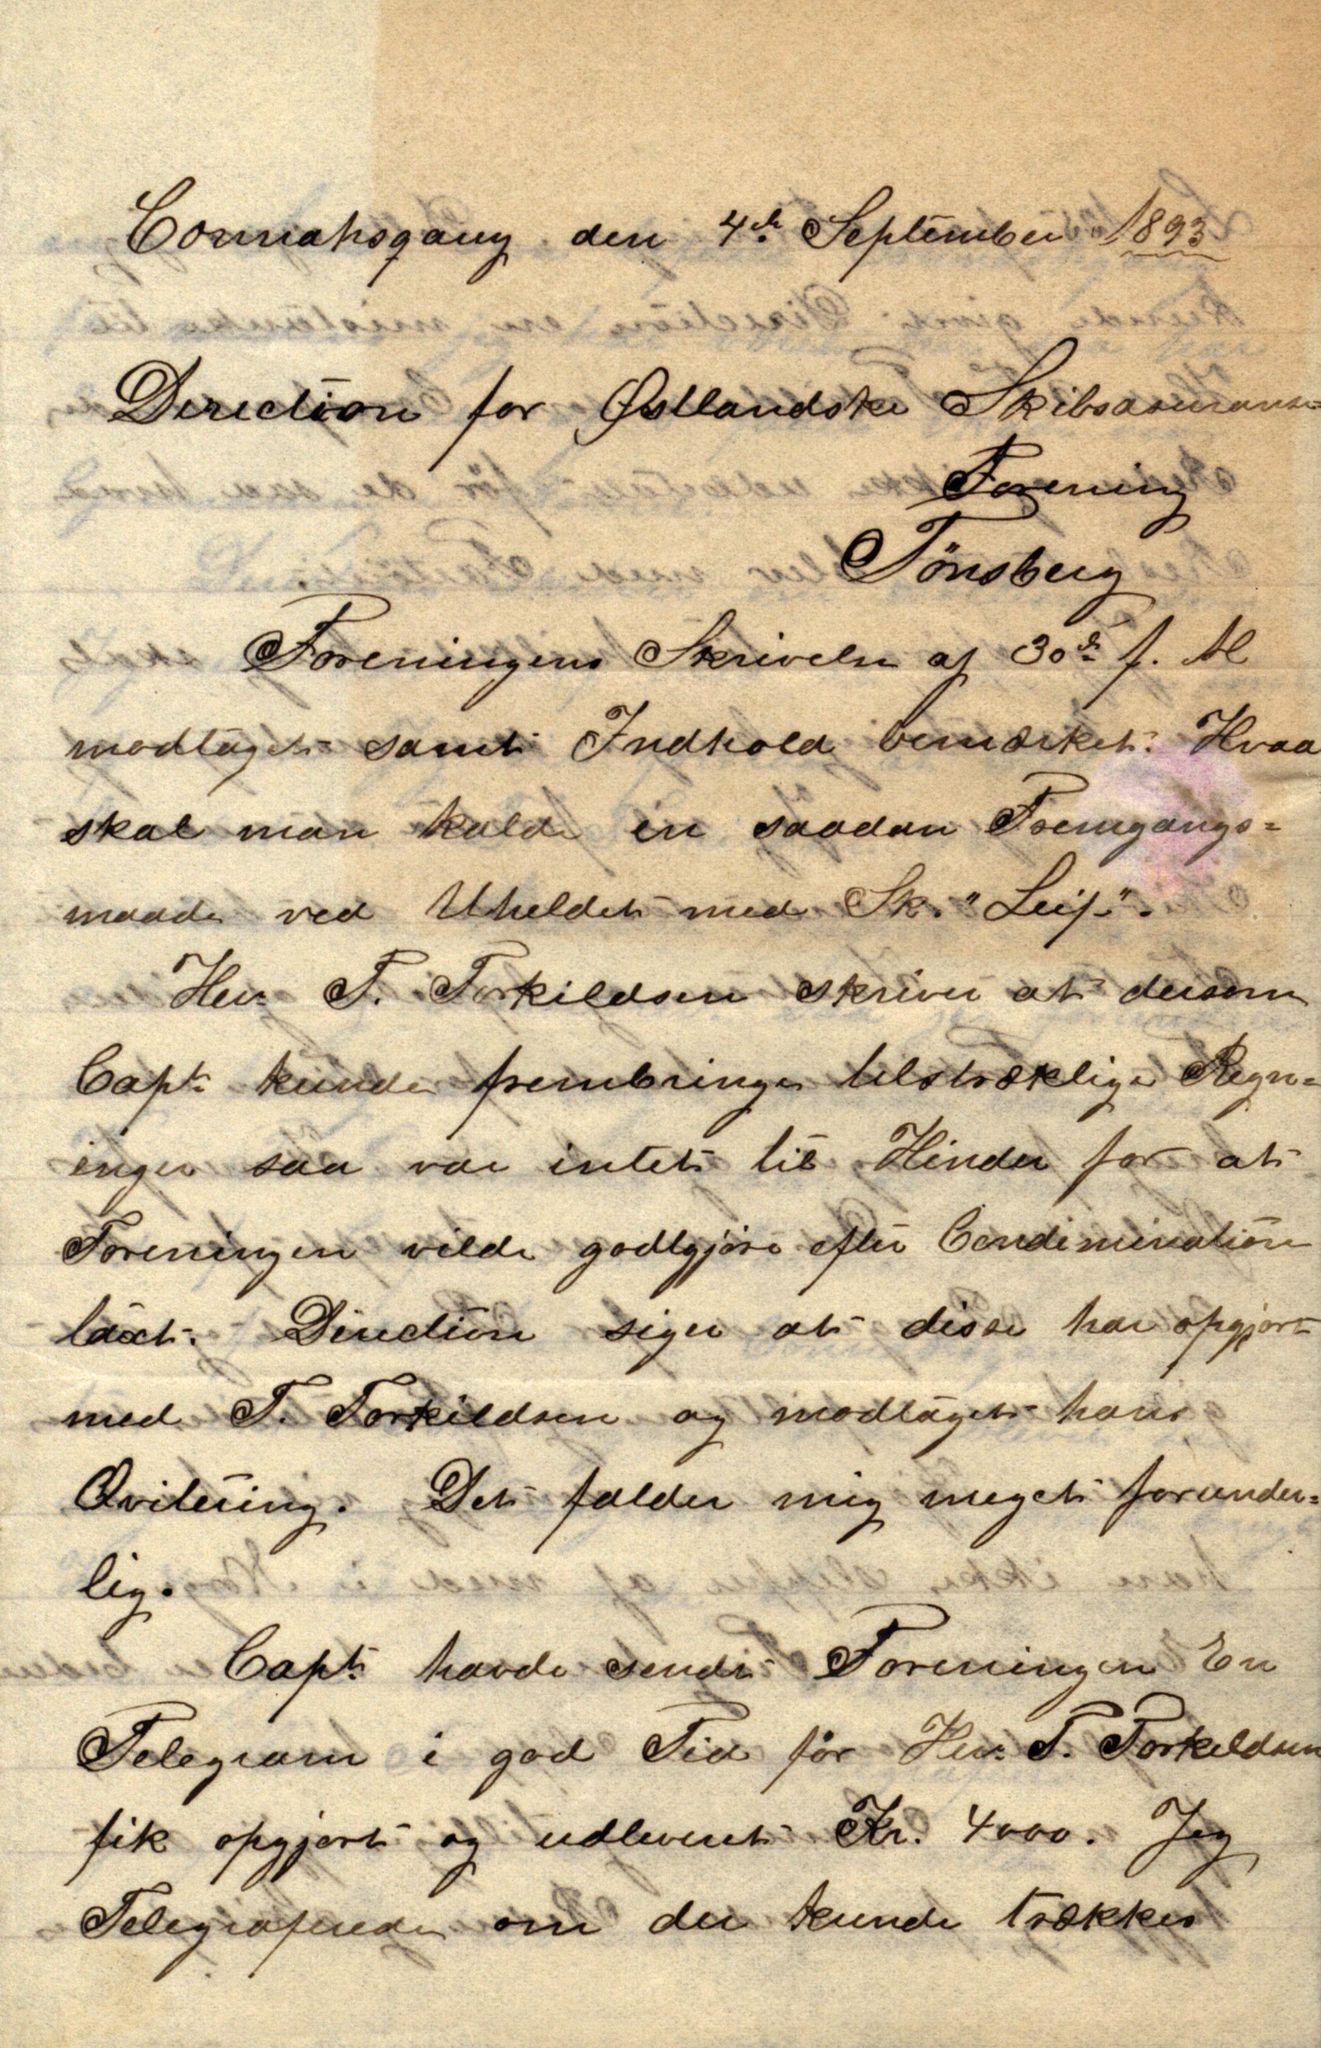 Connahsqauy den 4de September 1893
Direction for Østlandske Skibsasuranse=
Forening
Tönsberg
Foreningens Skrivelse af 30de f. M
modtaget samt Indhold bemærket. Hvad
skal man kalde en saadan Fremgangs=
maade ved Uheldet med Sk. "Leif".
Herr T. Torkildsen skriver at dersom
Capt. kunde frembringe tilstræklige Regn=
inger saa var intet til Hinder for at
Foreningen vilde godtgjøre efter Condimination
taxt. Direction siger at disse har opgjort
med T. Torkildsen og modtaget hans
Qvitering. Det falder mig meget forunder=
lig.
Capt. havde sendt Foreningen En
Telegram i god Tid før Herr T. Torkildsen
fik opgjort og udleveret Kr. 4000. Jeg
Telegraferede om der kunde trækkes